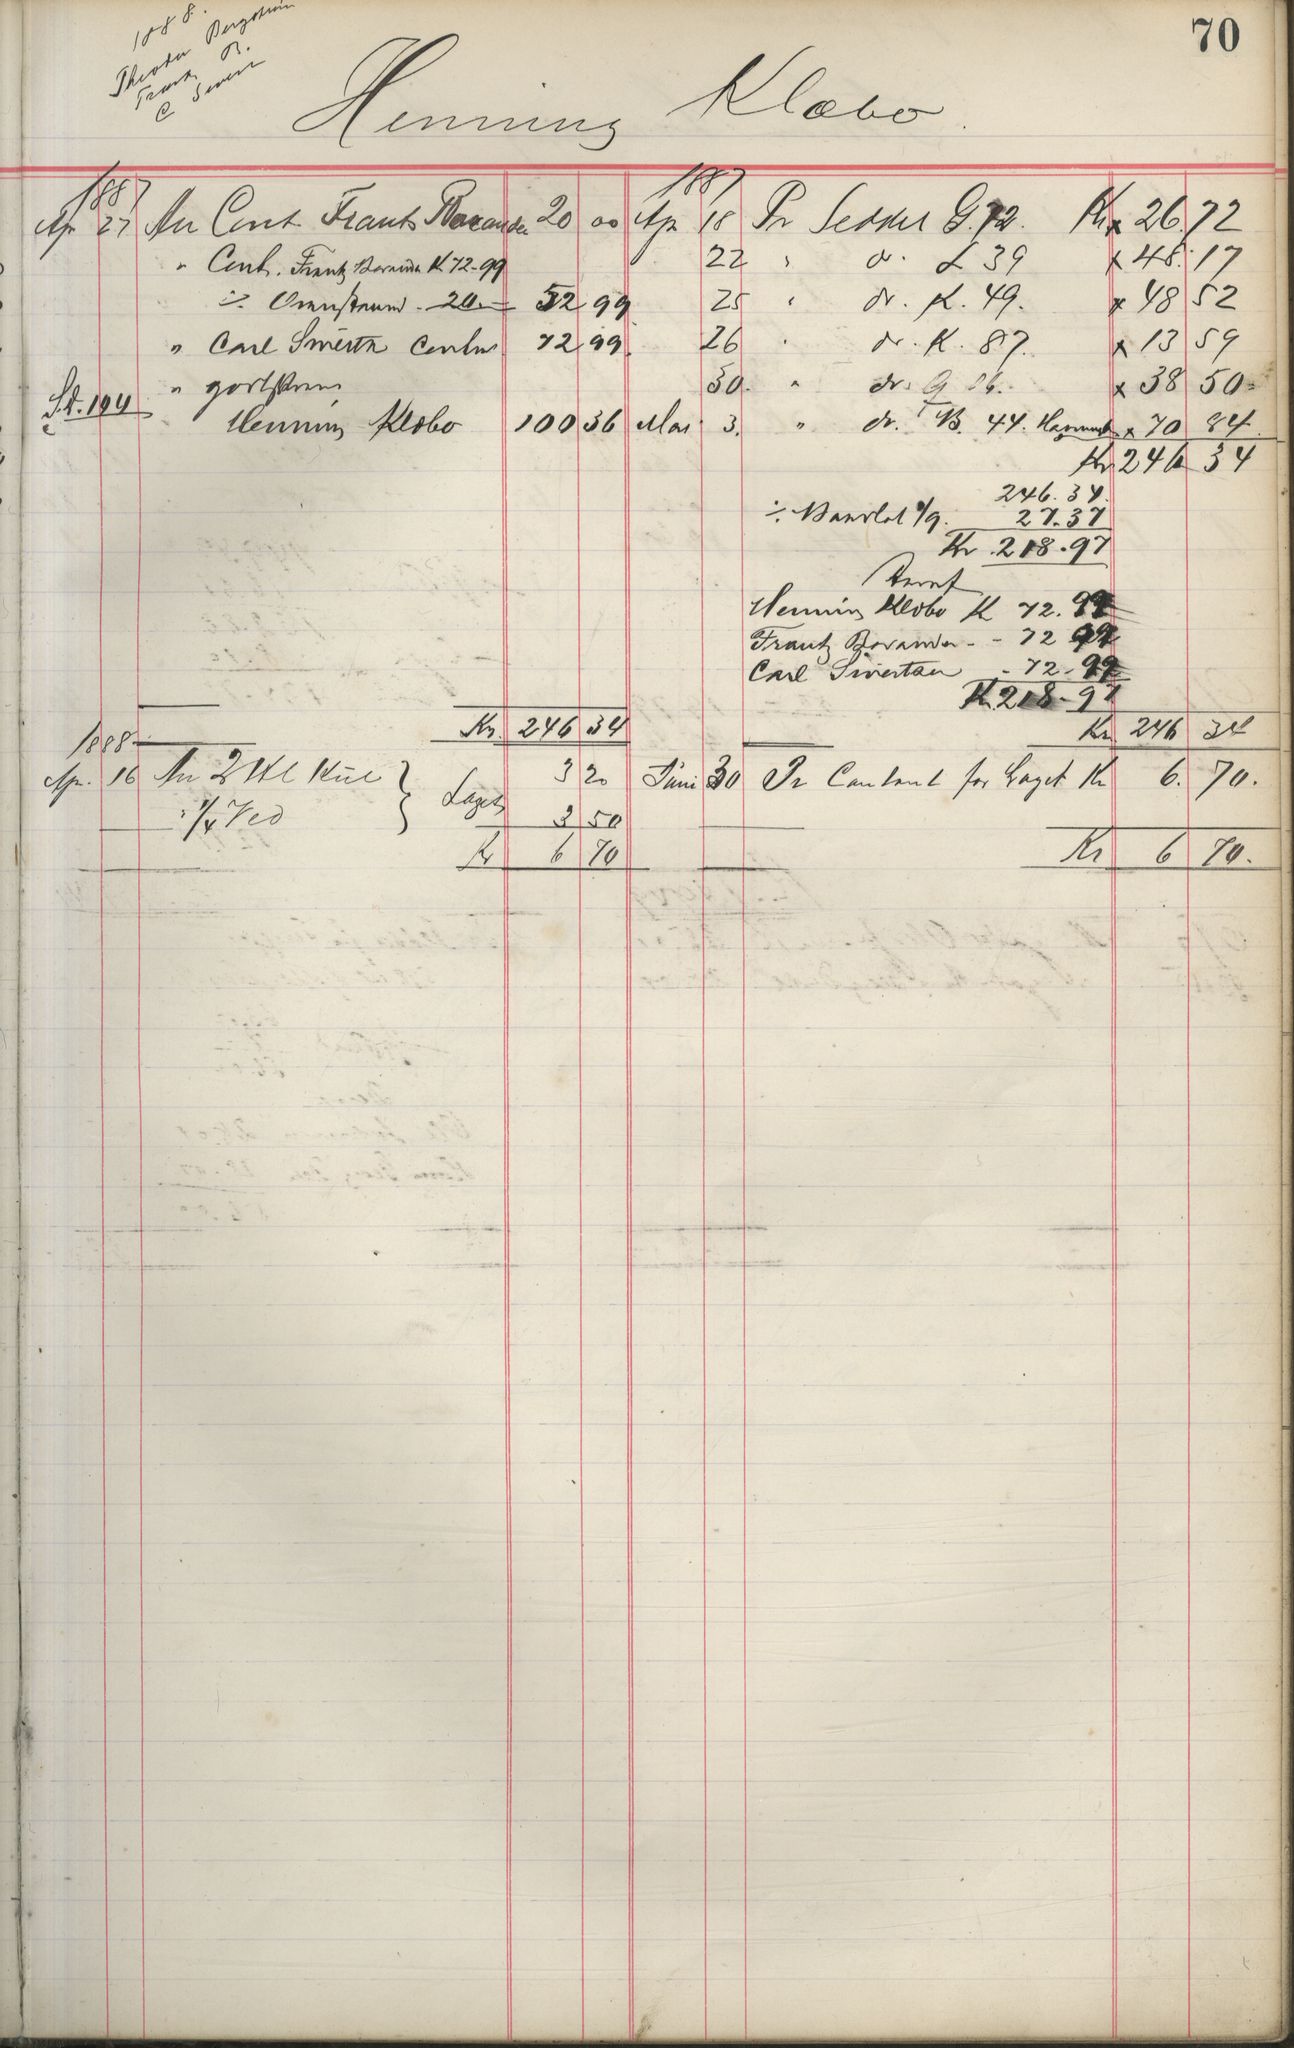 70
1888.
Theodor Bergstrøm
Frantz B.
C Sivert
Henning Klæbo.
1887
Apr 27 An Cont Frantz Borander 20 00
" Cont. Frantz Borander K 72-99
÷ Ovenstaaend. 20.= 52 99
" Carl Sivertn Contant 72 99.
S.d. 194
" godtskrevet
Henning Klæbo 100 36
Kr. 246 34
1887
Apr 18 Pr Seddel G. 72. Kr x 26.72
22 " do. L 39 x 48.17
25 " do. K. 49. x 48 52
26 " do. K. 87. x 13 59
30. " do. G 86. x 38 50=
Mai 3. " do. B. 44. x 70 84.
Kr 246 34
246.34.
÷ Baadlot 1/9. 27.37
Kr. 218.97
Heraf
Henning Klæbo K 72.99
Frantz Borander - - 72 99
Carl Sivertsen - 72-99
Kr. 218-97
Kr 246 34
1888
Apr. 16 An 2 Hl Kul } Laget 3 20
" 1/4 Ved 3 50
Kr 6 70
Juni 30 Pr Contant for Laget Kr 6. 70.
Kr 6 70.